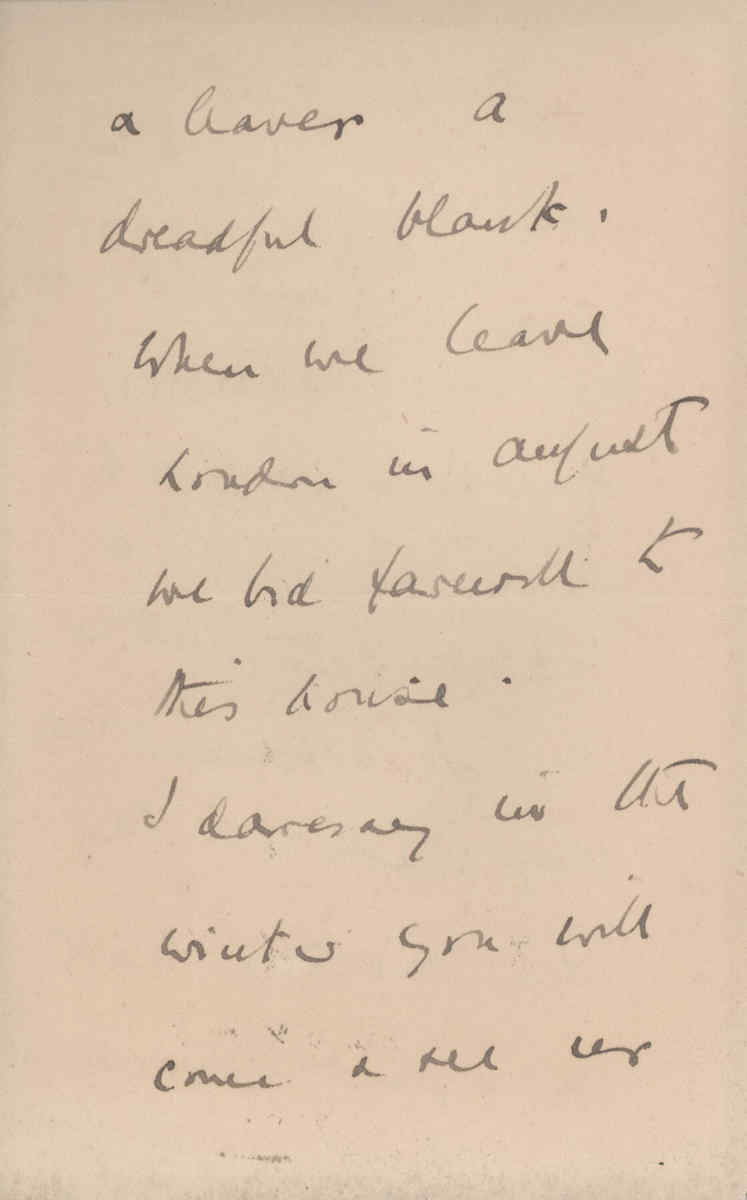 & leaves a
dreadful blank.
When we leave
London in August
we bid farewell to
this house.
I daresay in the
winter you will
come & see us